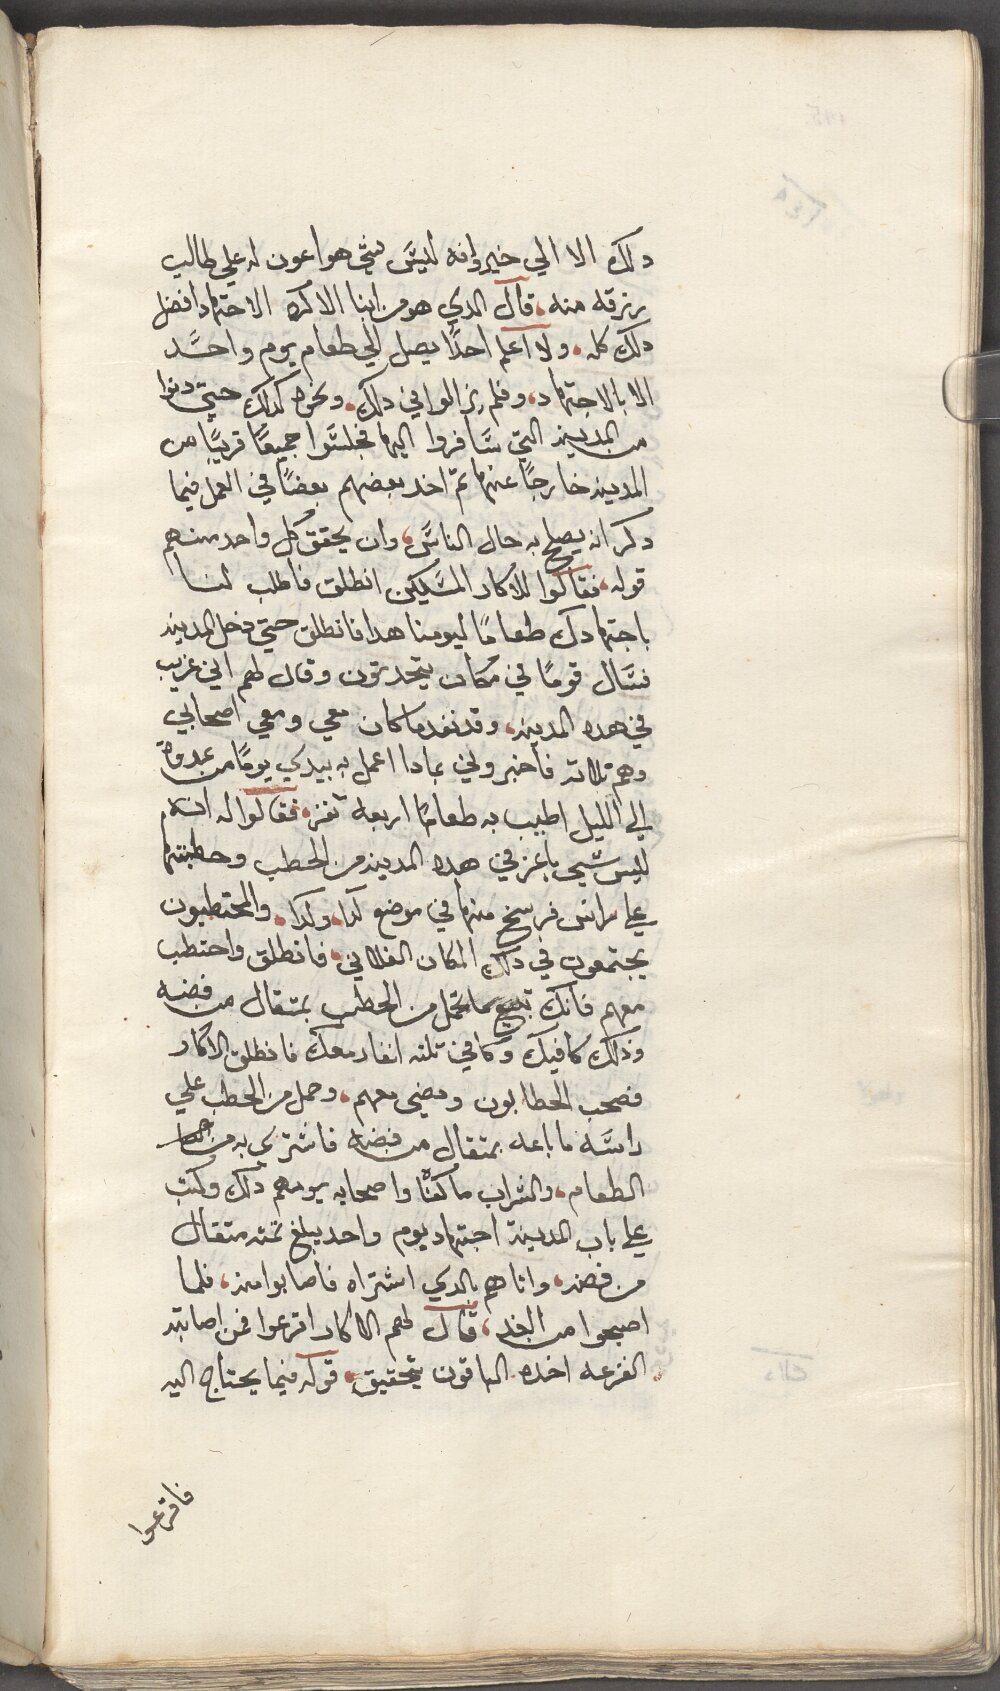 دلك الا الي خير وانه ليسَ شي هو اعون له علي طالب
برزقه منه، قال الدي هو من ابنا الاكره الاجتهاد افضل
دلك كله، ولا اعلم احدًا يصل الي طعام يوم واحسَد
الا بالاجتهاد، وفلم يزالوا في دلك، ونحوه كدلك حتي دنوا
من المدينه التي سَافروا اليها فجلسَوا جميعًا قريبًا من
المدينه خارجًا عنها تم اخد بعضهم بعضًا في العمل فيما
دكر انه يصلح به حال الناسَ، وان يحقق كل واحد منهم
قوله، فقالوا للاكار المسَيكين انطلق فاطلب لنا
باجتهادك طعامًا ليومنا هدا فانطلق حتي دخل المدينه
فسَال قومًا في مكان يتحدتون وقال لهم اني غريب
في هده المدينه، وقد نفد ما كان معي ومعي اصحابي
وهم تلاته فاخبروني بمادا اعمل به بيدي يومًا من غدوة
الي الليل اطيب به طعامًا اربعه نفر، فقالوا له انه
ليس شي باعز في هده المدينه من الحطب وحطبتها
علي راس فرسخ منها في موضع كدا، وكدا، والمحتطبون
يجتمعون في دلك المكان الفلاني، فانطلق واحتطب
معهم فانك تبيع ما تحمل من الحطب بمتقال من فضه
ودلك كافيك وكافي تلته انفار معك فانطلق الاكار
فصحب الحطابون ومضي معهم، وحمل من الحطب علي
راسَه ما باعه بمتقال من فضه فاشتري به من
الطعام، والشراب ما كفاه واصحابه يومهم دلك وكتب
علي باب المدينة اجتهاد يوم واحد يبلغ تمنه متقال
من فضه، واتاهم بالدي اشتراه فاصابوا منه، فلما
اصبحوا من الغد، قال لهم الاكار اقرعوا فمن اصابته
القرعه اخده الباقون بتحقيق، قوله فيما يحتاج اليه
فاقرعوا